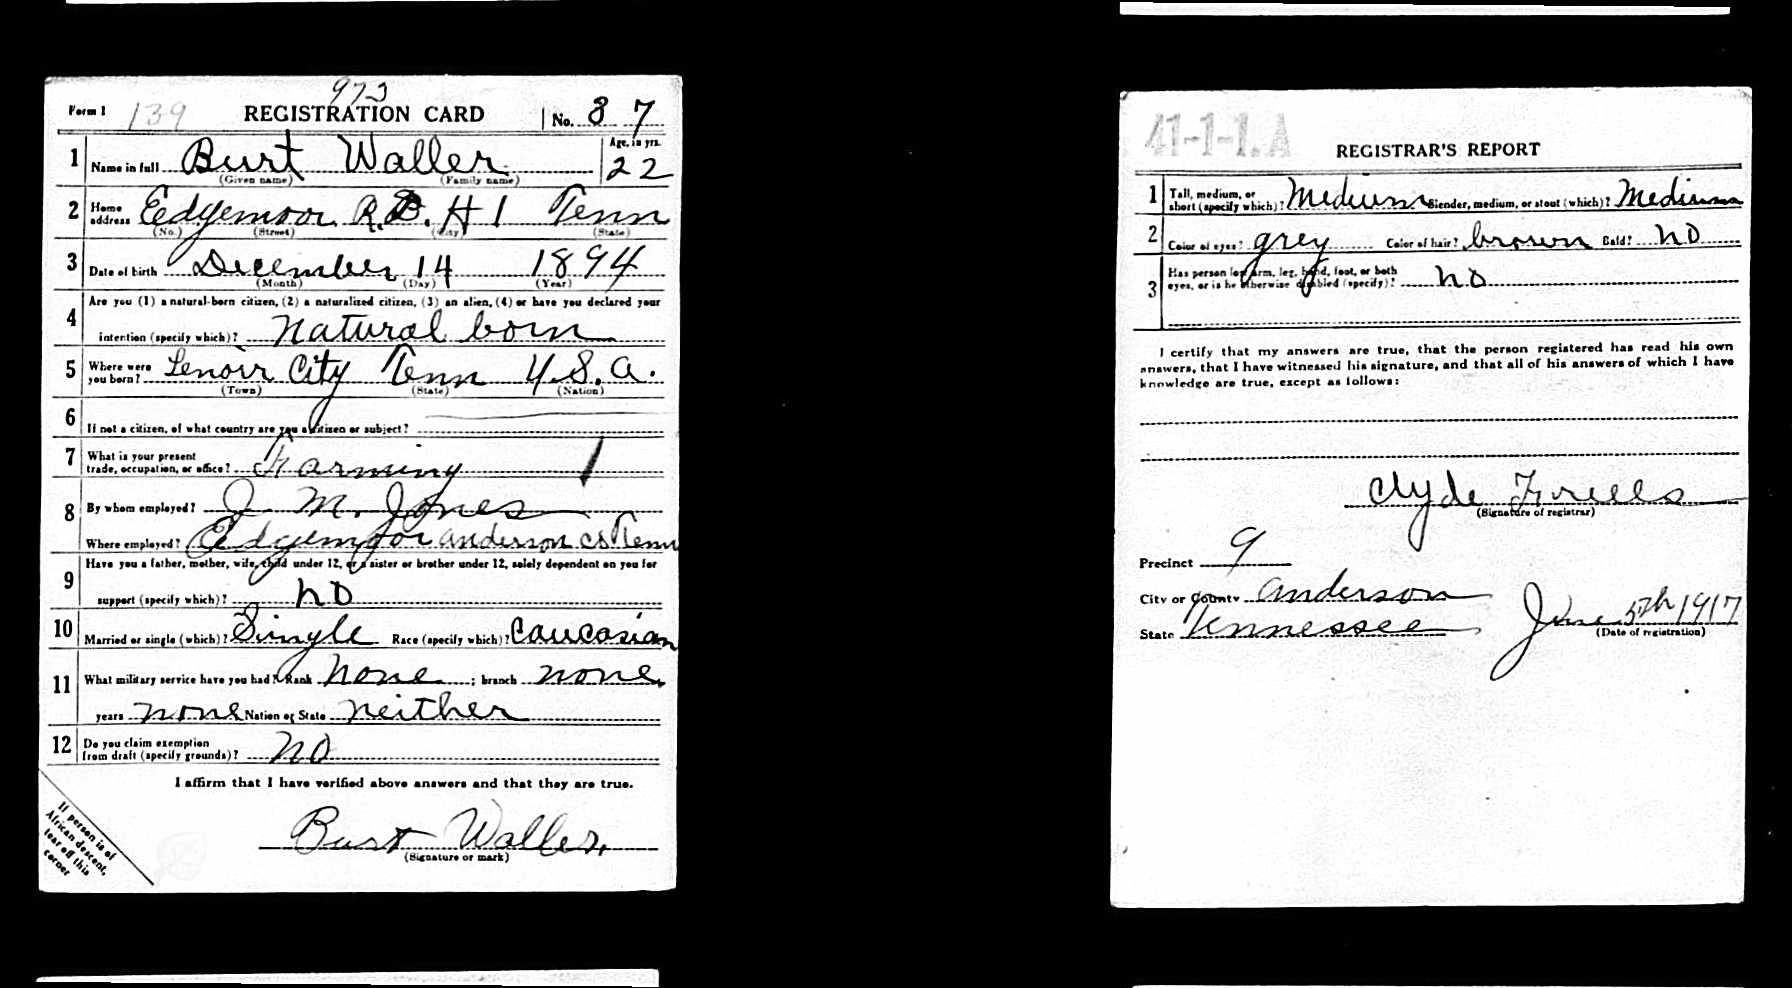 973
Form 1 139 REGISTRATION CARD No. 87
1 Name in full Burt Waller Age, in yrs. 22
(Given name) (Family name)
2 Home address Edgemoor R.D. # 1 Tenn
(No.) (Street) (City) (State)
3 Date of birth December 14 1894
(Month) (Day) (Year)
Are you (1) a natural-born citizen, (2) a naturalized citizen, (3) an alien, (4) or have you declared your
4 intention (specify which)? Natural born
5 Where were you born? Lenoir City Tenn U.S.A.
(Town) (State) (Nation)
6 If not a citizen, of what country are you a citizen or subject?
7 What is your present trade, occupation, or office? Farming
8 By whom employed? J. M. Jones
Where employed? Edgemoor Anderson Co Tenn
9 Have you a father, mother, wife, child under 12, or a sister or brother under 12, solely dependent on you for
support (specify which)? No
10 Married or single (which)? Single Race (specify which)? Caucasian
11 What military service have you had? Rank None ; branch none
years none Nation or State Neither
12 Do you claim exemption from draft (specify grounds)? No
I affirm that I have verified above answers and that they are true.
Burt Waller.
(Signature or mark)
If person is of
African descent,
tear off this
corner
41-1-1. A
REGISTRAR'S REPORT
1 Tall, medium, or short (specify which)? Medium Slender, medium, or stout (which)? Medium
2 Color of eyes? grey Color of hair? brown Bald? No
3 Has person lost arm, leg, hand, foot, or both
eyes, or is he otherwise disabled (specify)? No
I certify that my answers are true, that the person registered has read his own
answers, that I have witnessed his signature, and that all of his answers of which I have
knowledge are true, except as follows:
Clyde
(Signature of registrar)
Precinct 9
City or County Anderson
State Tennessee June 5th 1917
(Date of registration)